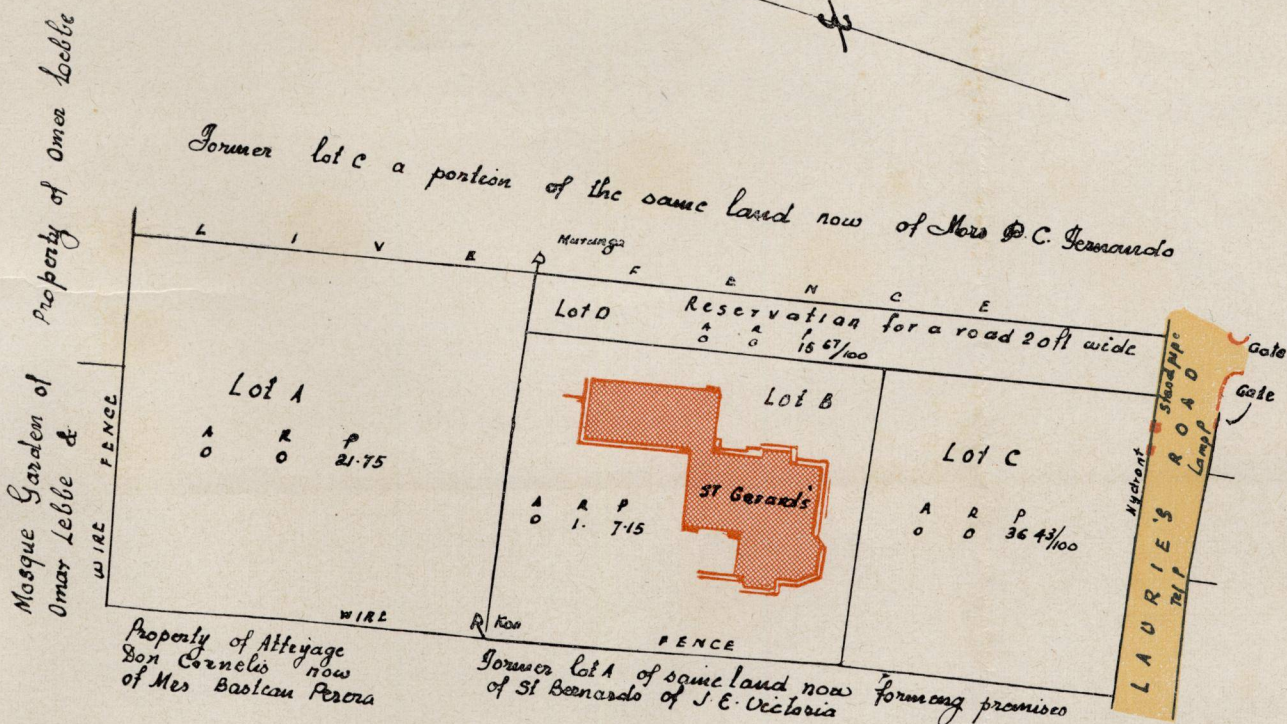 Property of Omer Lebbe
Mosque Garden of
Omar Lebbe &
Former lot C a portion of the same land now of Mors D.C. Fernando
LIVE FENCE
Murunga
Lot D
Reservation for a road 20ft wide
A R P
0 0 15 67/100
WIRE FENCE
Lot A
A R P
0 0 21.75
Lot B
ST Gerard's
A R P
0 1. 7.15
Lot C
A R P
0 0 36 43/100
Hydrant
Standpipe
LAURIE'S ROAD
Lamp P
Tel P
Gate
Gate
WIRE FENCE
Kon
Property of Attiyage
Don Cornelis now
of Mrs Bastian Perera
Former lot A of same land now forming premises
of St Bernards of J.E. Victoria